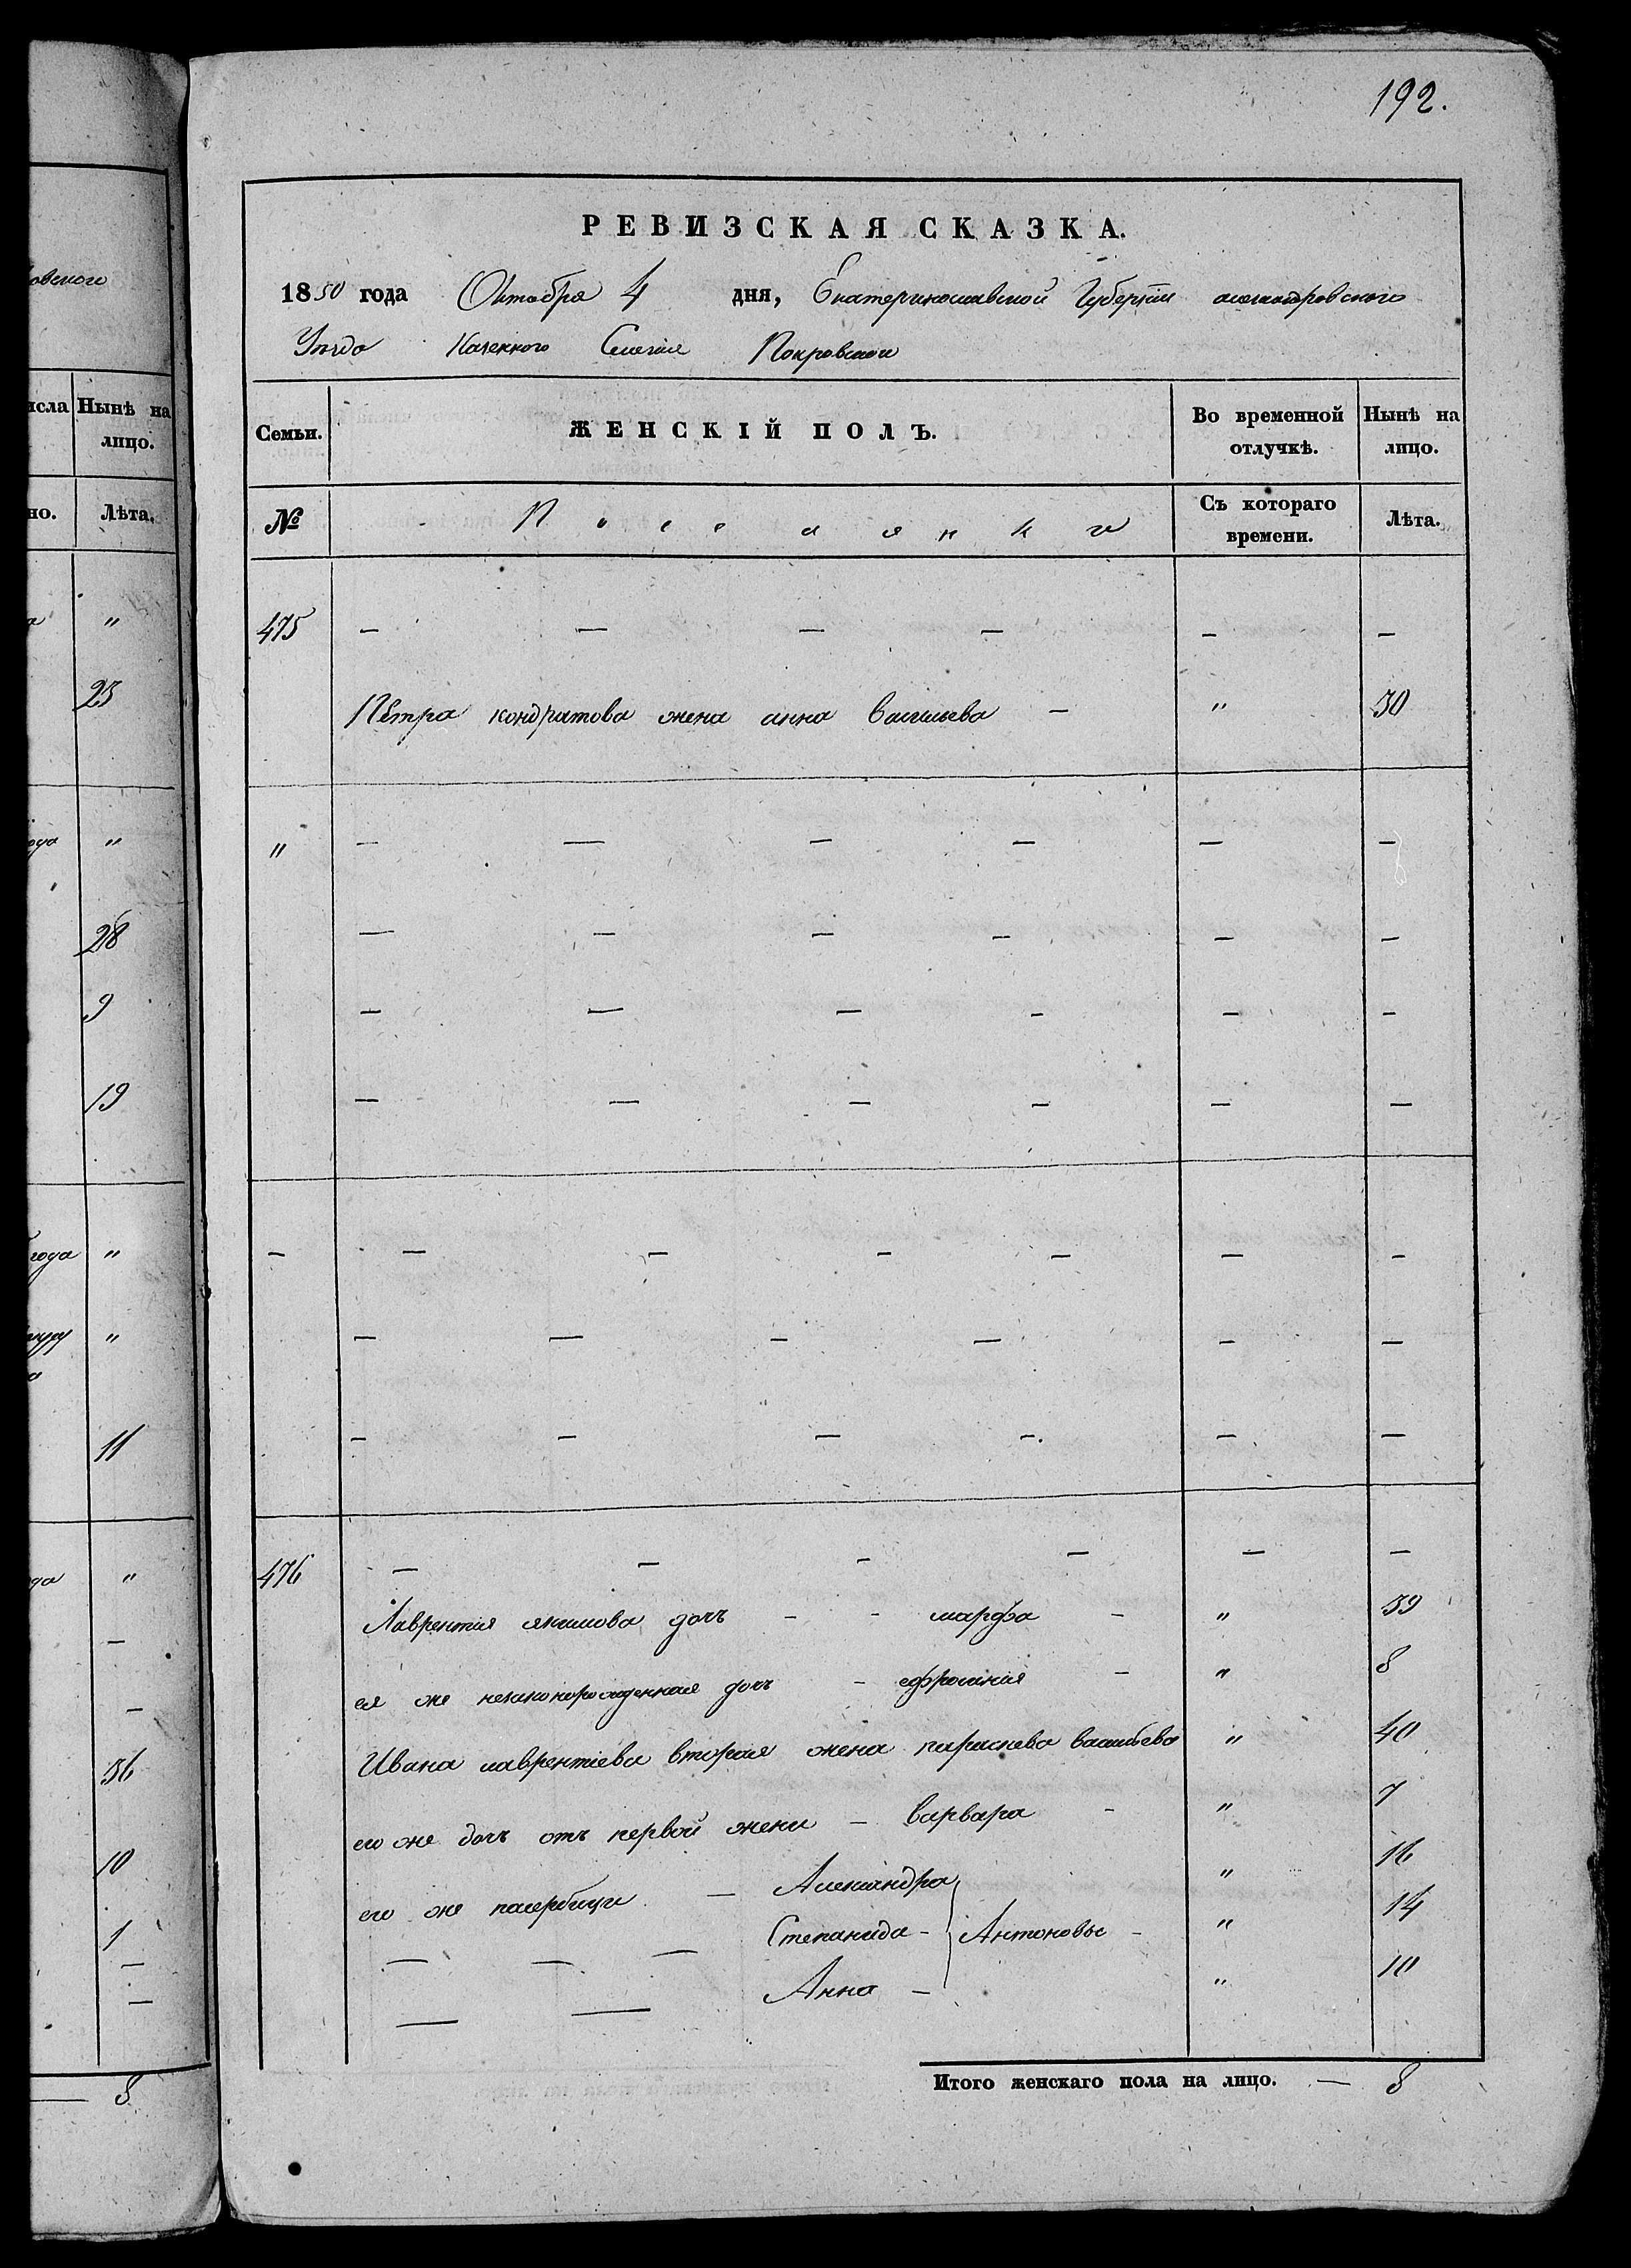 овского
192.
РЕВИЗСКАЯ СКАЗКА.
1850 года Октября 4 дня, Екатеринославской Губерніи александровского
Уѣзда Казенного Селенія Покровского
исла Нынѣ на лицо.
но. Лѣта.
Семьи. ЖЕНСКІЙ ПОЛЪ. Во временной отлучкѣ. Нынѣ на лицо.
№ Поселянки Съ котораго времени. Лѣта.
"
23
ода "
28
9
19
года "
"
11
"
—
—
36
10
1
—
—
— 8
475 — — — — — —
Петра кондратова жена анна васильева — " 30
" — — — — — —
— — — — — —
— — — — — —
— — — — — —
— — — — — — —
— — — — — —
— — — — — —
476 — — — — — —
Лаврентія якимова дочь - - марфа - " 39
ея же незаконорожденная дочь - ефросинія - " 8
Ивана лаврентіева вторая жена параскева васильева " 40
его же дочь отъ первой жени — варвара - " 7
его же пасербици — Александра " 16
— — — Степанида - Антоновы - " 14
— — Анна — " 10
Итого женскаго пола на лицо. — 8